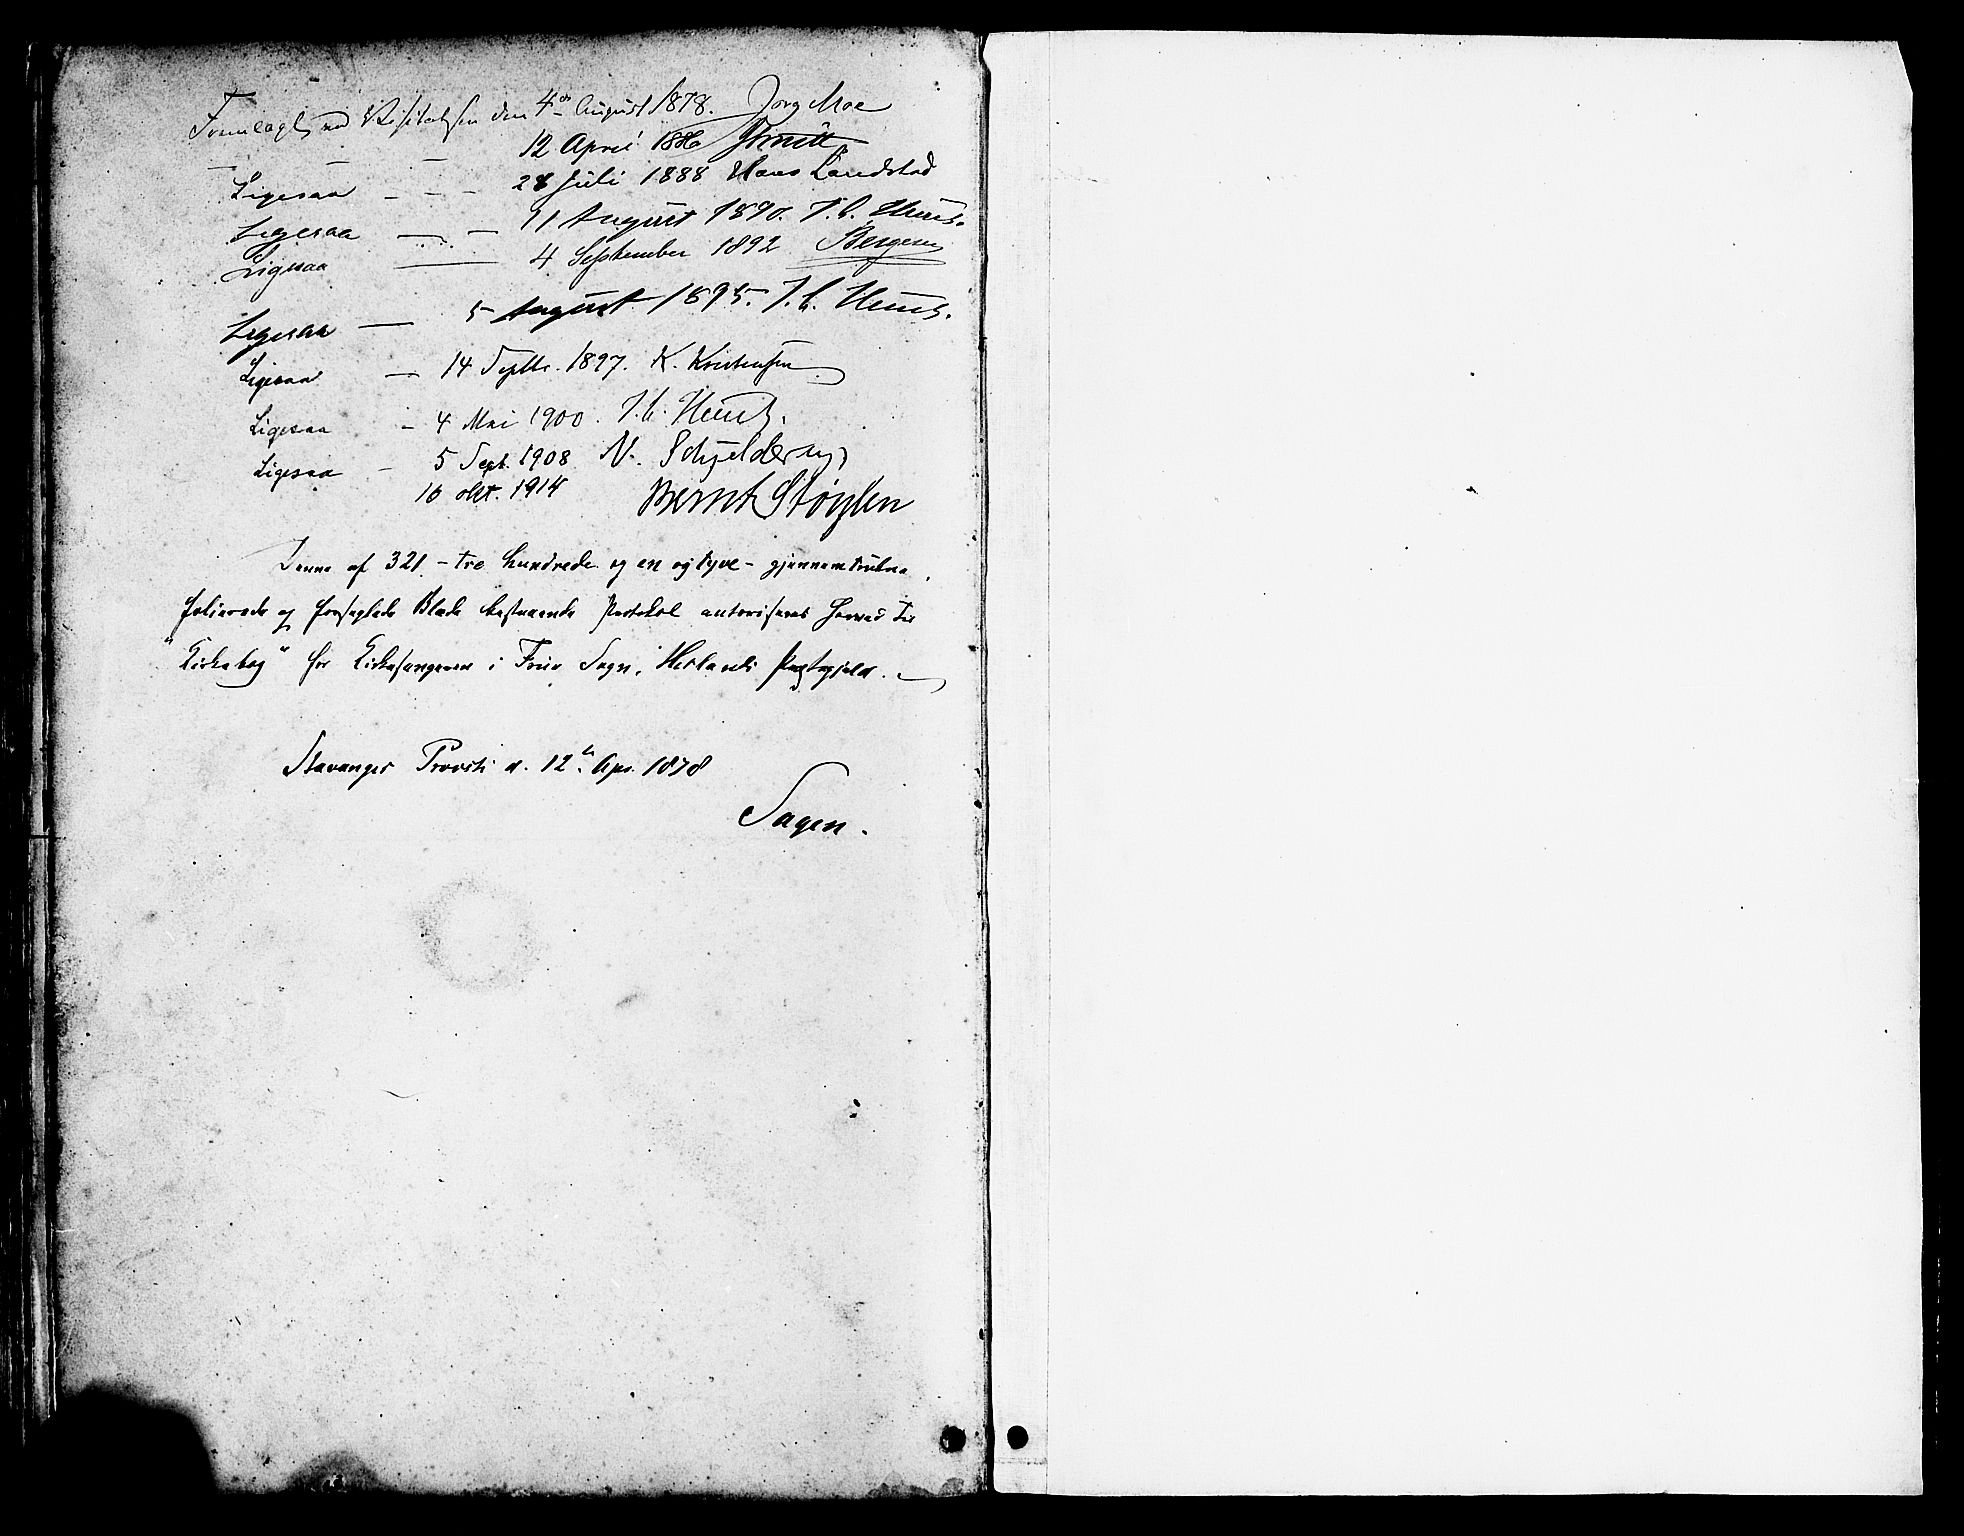 Fremlagt ved Visitatsen den 4de August 1878. Jørg Moe
— — — 12 April 1886
Ligesaa — — — 28 Juli 1888 Hans Landstad
Ligesaa — — 11 August 1890. J. C. Heuch.
Ligesaa — 4 September 1892
Ligesaa — 5 August 1895. J. C. Heuch.
Ligesaa — 14 Septbr. 1897. K. Kristensen
Ligesaa — 4 Mai 1900. J. C. Heuch.
Ligesaa — 5 Sept. 1908 N. Schjelderup
16 okt. 1914 Bernt Støylen
Denne af 321 - tre hundrede og en og tyve - gjennemtrukne,
folierede og forseglede Blade bestaaende Protokol autoriseres herved til
"Kirkebog" for Kirkesangeren i Sogn, Præstegjeld.
Provsti d. 12te Apr. 1878